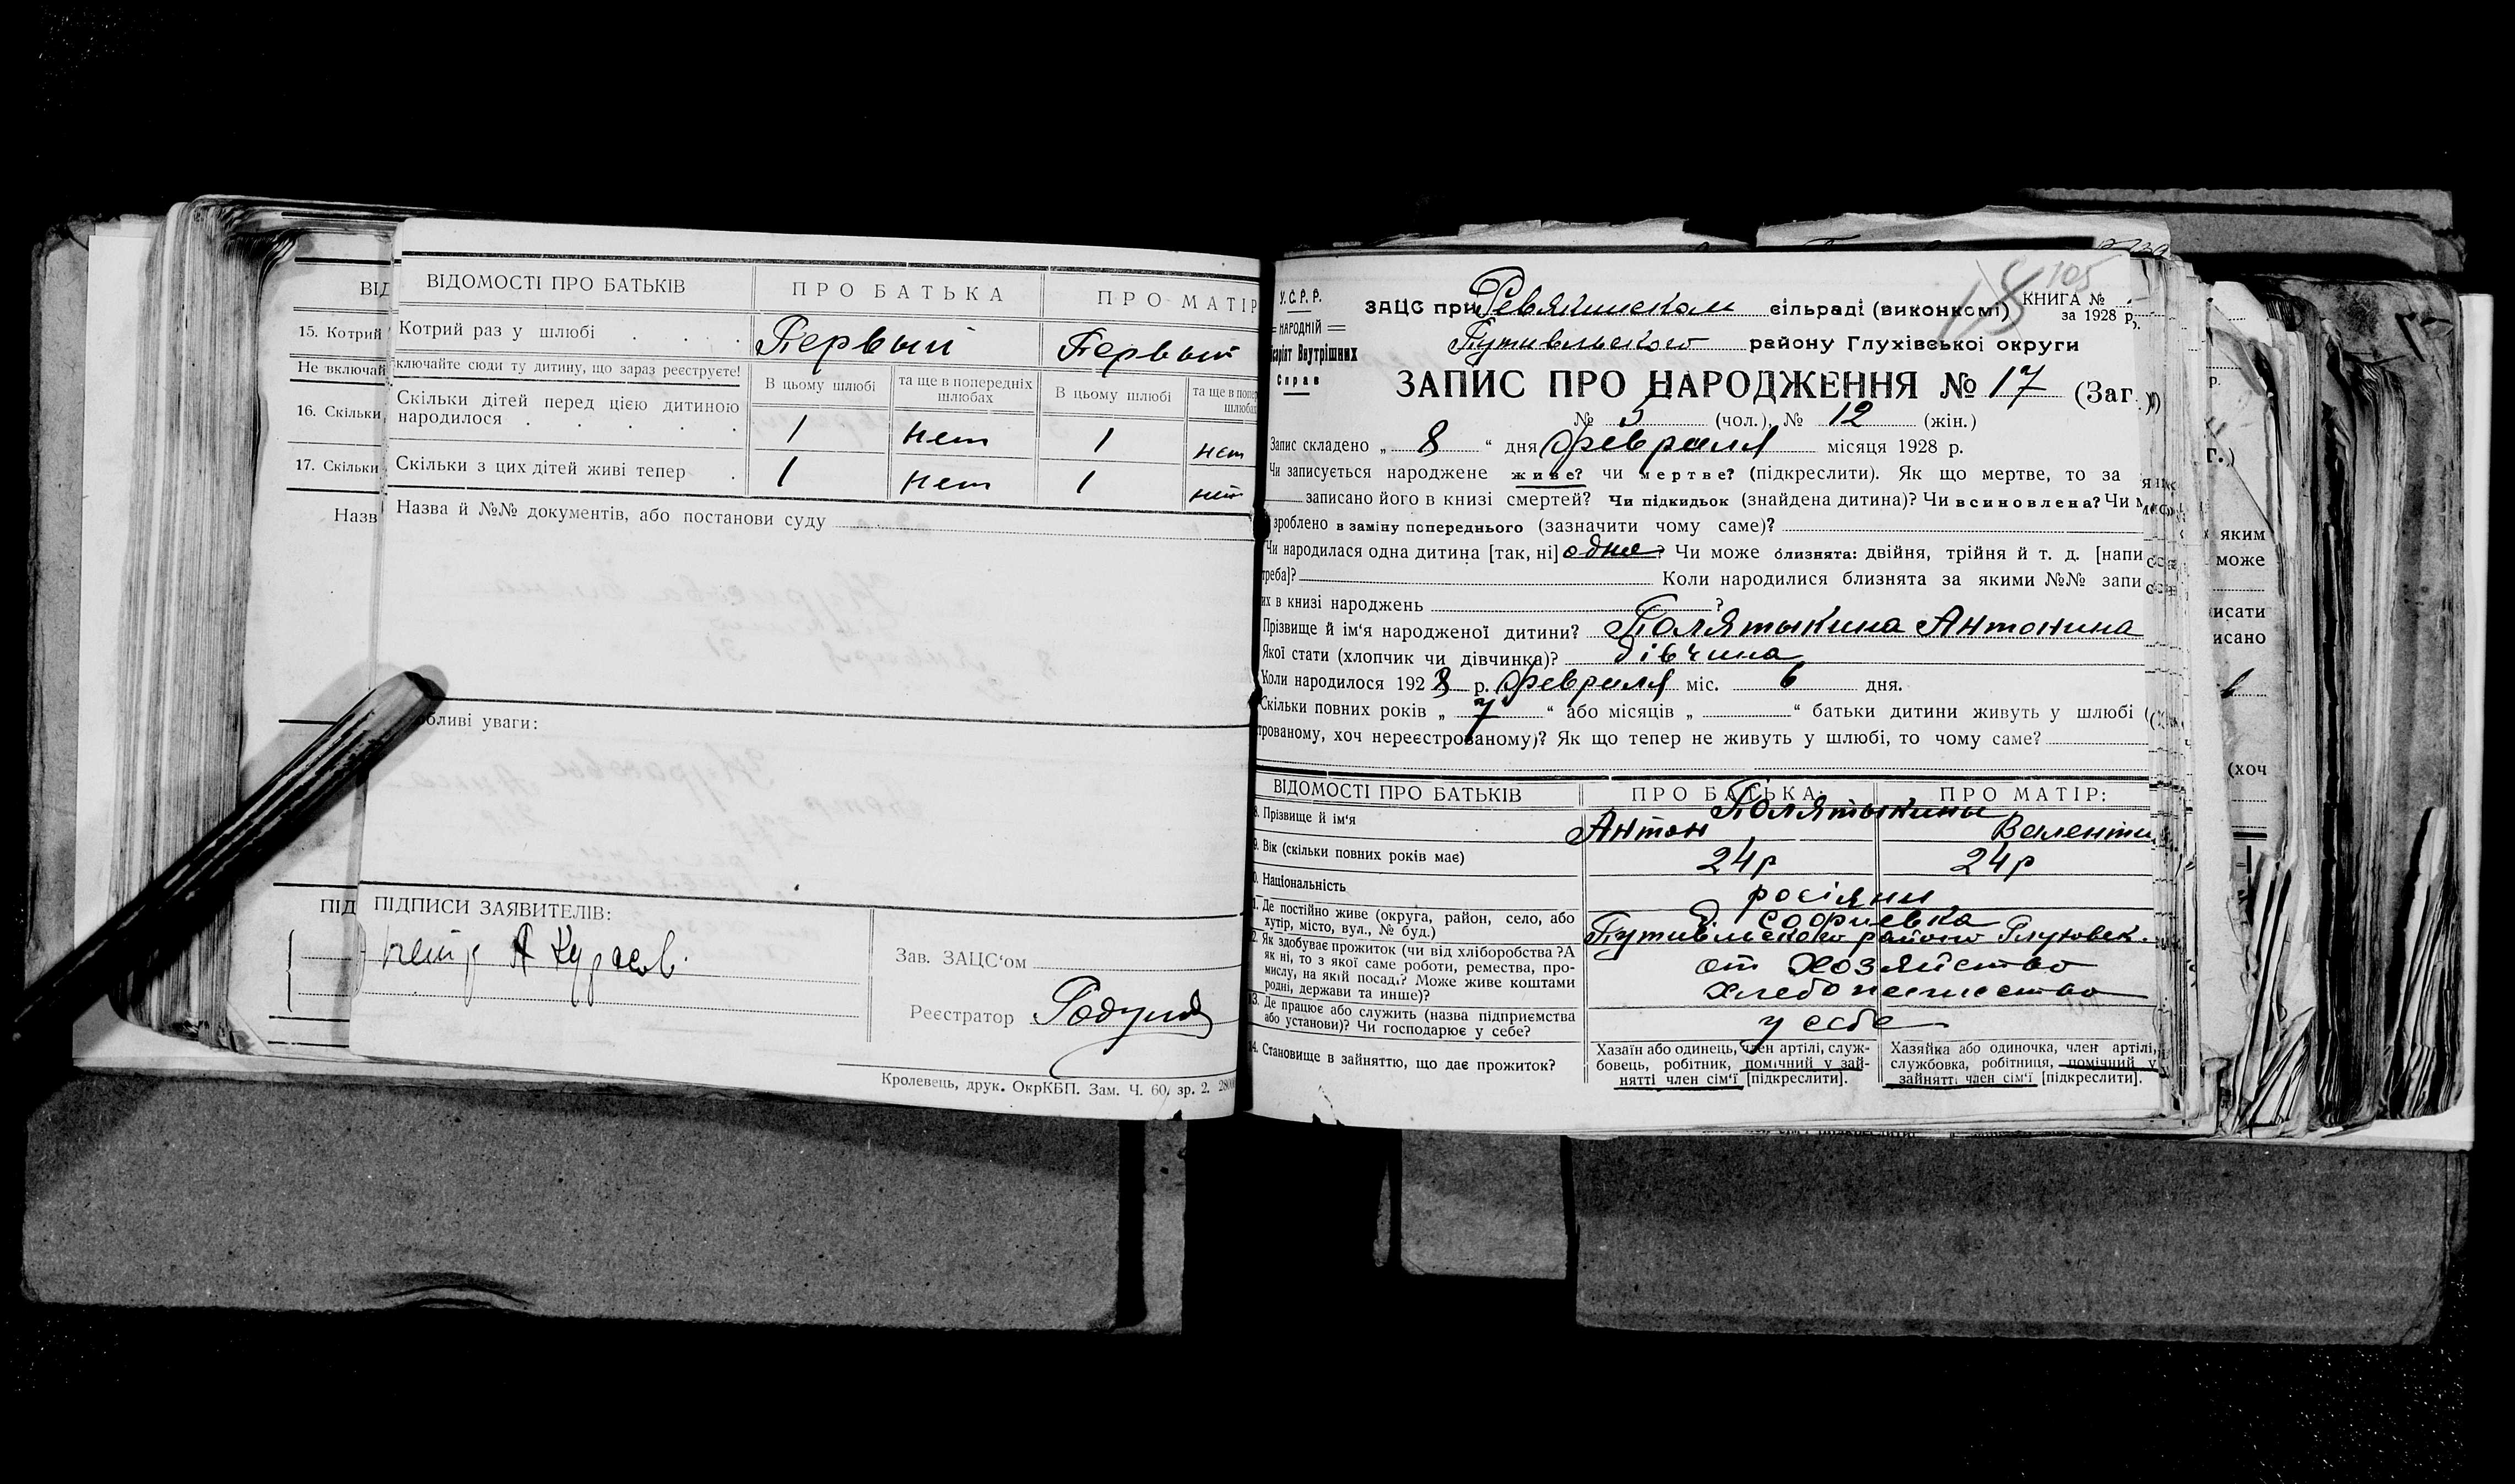 ВІД
15. Котрий
Не включай
16. Скільки
17. Скільки
Назв
ПІД
ВІДОМОСТІ ПРО БАТЬКІВ ПРО БАТЬКА ПРО МАТІР
Котрий раз у шлюбі . . . Первый Первый
ключайте сюди ту дитину, що зараз реєструєте!
В цьому шлюбі та ще в попередніх шлюбах В цьому шлюбі та ще в попе
шлюбах
Скільки дітей перед цією дитиною
народилося . . . . . 1 нет 1 нет
Скільки з цих дітей живі тепер . 1 нет 1 нет
Назва й №№ документів, або постанови суду
бливі уваги:
ПІДПИСИ ЗАЯВИТЕЛІВ:
Зав. ЗАЦС‘ом
Реєстратор
Кролевець, друк. ОкрКБП. Зам. Ч. 60, зр. 2. 2800
У.С.Р.Р.
НАРОДНІЙ
Внутрішних
Справ
105
ЗАЦС при Ревякинском сільраді (виконкомі) КНИГА №
за 1928 р.
Путивльского району Глухівської округи
ЗАПИС ПРО НАРОДЖЕННЯ № 17 (Заг.)
№ 5 (чол.), № 12 (жін.)
Запис складено „ 8 “ дня февраля місяця 1928 р.
Чи записується народжене живе? чи мертве? (підкреслити). Як що мертве, то за
записано його в книзі смертей? Чи підкидьок (знайдена дитина)? Чи всиновлена? Чи
зроблено в заміну попереднього (зазначити чому саме)?
Чи народилася одна дитина [так, ні] одне? Чи може близнята: двійня, трійня й т. д. [напи
треба]? Коли народилися близнята за якими №№ запи
их в книзі народжень ?
Прізвище й ім‘я народженої дитини? Полятыкина Антонина
Якої стати (хлопчик чи дівчинка)? дівчина
Коли народилося 1928 р. февраля міс. 6 дня.
Скільки повних років „ 7 “ або місяців „ “ батьки дитини живуть у шлюбі (
трованому, хоч нереєстрованому)? Як що тепер не живуть у шлюбі, то чому саме?
ВІДОМОСТІ ПРО БАТЬКІВ ПРО БАТЬКА: ПРО МАТІР:
8. Прізвище й ім‘я Полятыкины
Антон Валенти
9. Вік (скільки повних років має) 24р 24р
0. Національність росіяни
1. Де постійно живе (округа, район, село, або
хутір, місто, вул., № буд.) д. Софиевка
Путивльского района Глуховск.
2. Як здобуває прожиток (чи від хліборобства ?А
як ні, то з якої саме роботи, ремества, про-
мислу, на якій посаді? Може живе коштами
родні, держави та инше)? от хозяйство
хлебопашество
13. Де працює або служить (назва підприємства
або установи)? Чи господарює у себе? у себе
14. Становище в зайняттю, що дає прожиток?
Хазаїн або одинець, член артілі, служ-
бовець, робітник, помічний у зай-
нятті член сім‘ї [підкреслити].
Хазяйка або одиночка, член артілі,
службовка, робітниця, помічний у
зайнятті член сім‘ї [підкреслити].
яким
може
исати
исано
(хоч